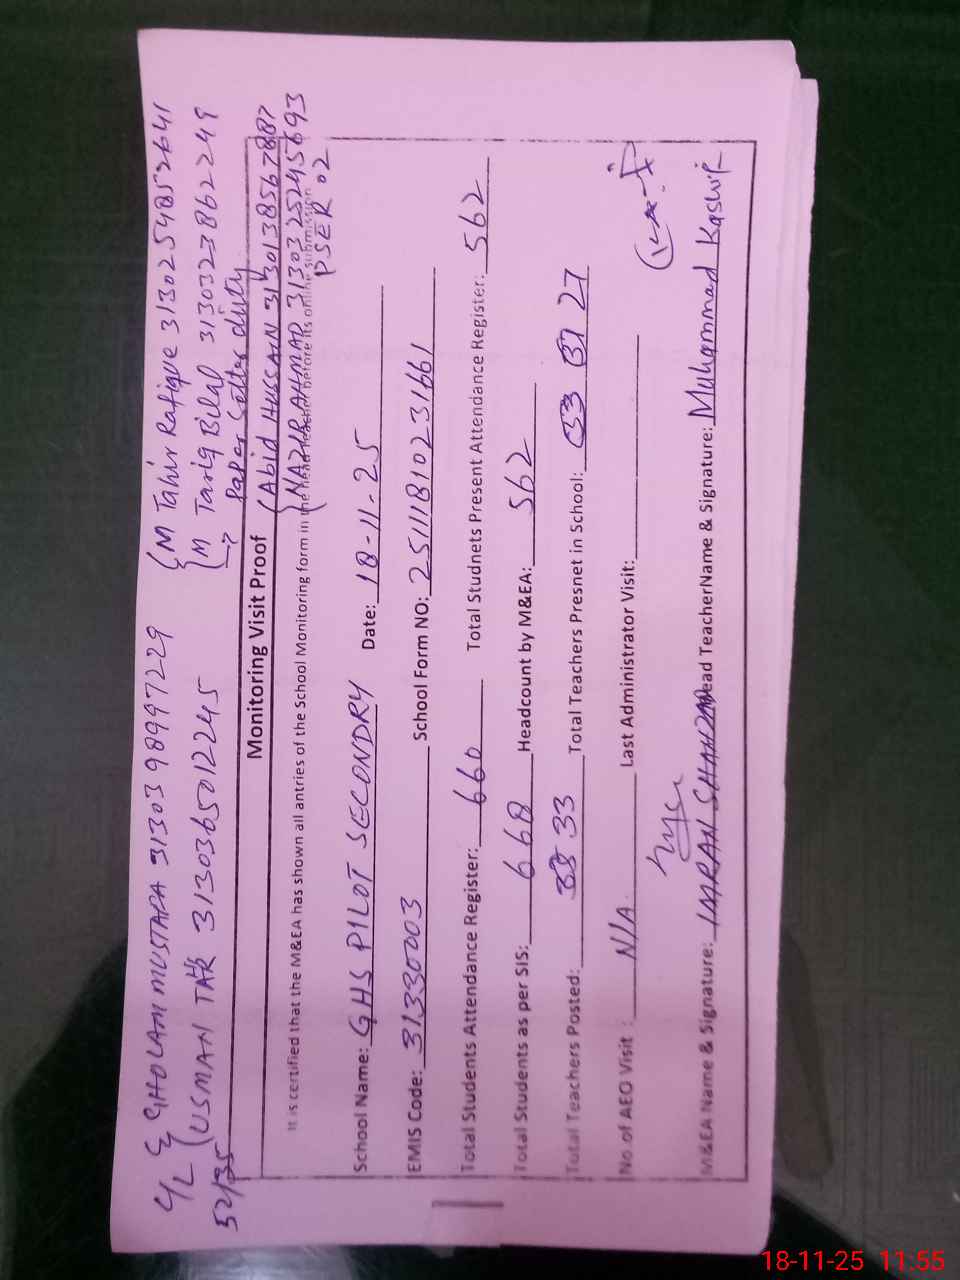 C/L { GHOLAM MUSTAFA 31303 98997229
( USMAN TAR 3130365012245
52/35
{ M Tahir Rafique 3130254852641
{ M Tariq Bilal 3130323862249
→ Paper Setter duty
( Abid HUSSAIN 3130138567887
{ NAZIR AHMAD 3130325245693
PSER 02
Monitoring Visit Proof
It is certified that the M&EA has shown all antries of the School Monitoring form in the head teacher before its online submission.
School Name: GHS PILOT SECONDRY Date: 18-11-25
EMIS Code: 31330003 School Form NO: 25111810231661
Total Students Attendance Register: 660 Total Studnets Present Attendance Register: 562
Total Students as per SIS: 668 Headcount by M&EA: 562
Total Teachers Posted: 33 Total Teachers Presnet in School: 27
No of AEO Visit : N/A. Last Administrator Visit:
M&EA Name & Signature: IMRAN SHAHZAD Head TeacherName & Signature: Muhammad Kashif
18-11-25 11:55